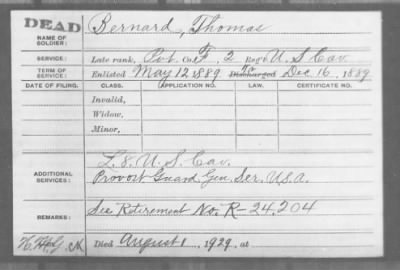 DEAD
NAME OF SOLDIER: Bernard, Thomas
SERVICE: Late rank, Pvt. Co. F, 2 Reg't U.S. Cav.
TERM OF SERVICE: Enlisted May 12, 1889 Discharged To Dec 16, 1889
DATE OF FILING. CLASS. APPLICATION NO. LAW. CERTIFICATE NO.
Invalid,
Widow,
Minor,
L. 8. U. S. Cav.
ADDITIONAL SERVICES: Provost Guard, Gen. Ser. U.S.A.
REMARKS: See Retirement No. R-24,204
Died August 1, 1929, at